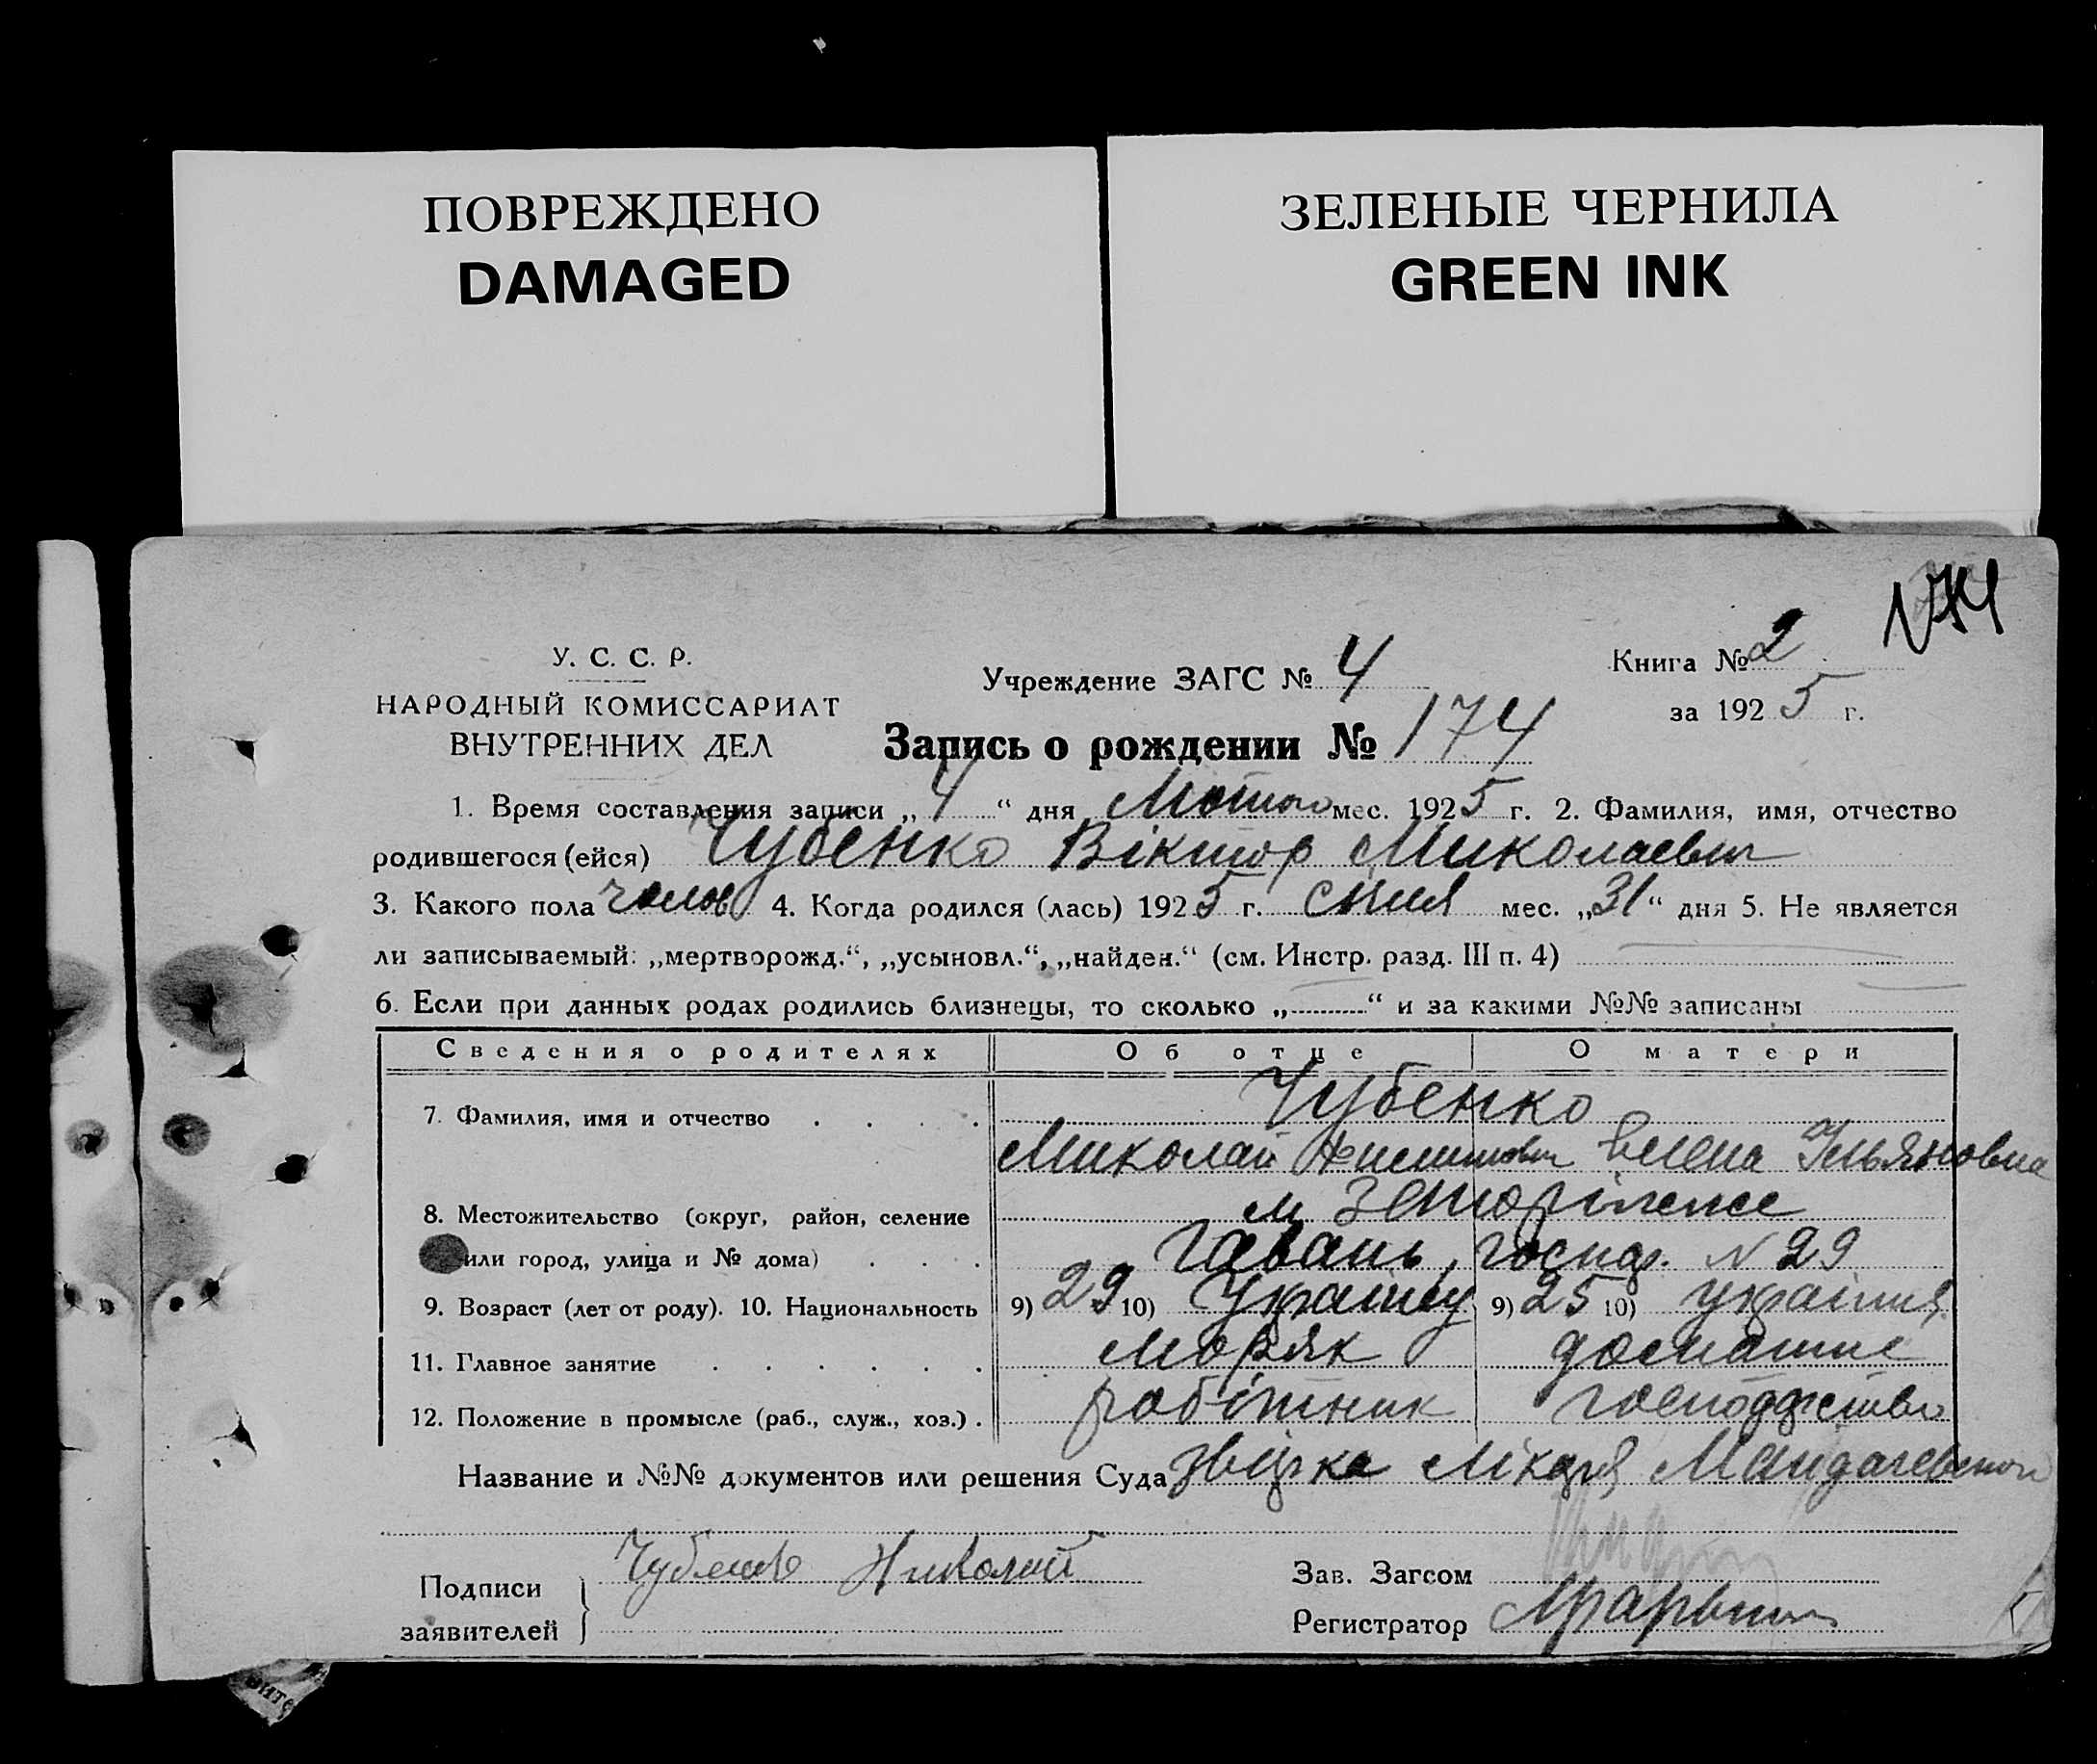 ПОВРЕЖДЕНО
DAMAGED
ЗЕЛЕНЫЕ ЧЕРНИЛА
GREEN INK
У. С. С. Р.
НАРОДНЫЙ КОМИССАРИАТ
ВНУТРЕННИХ ДЕЛ
Учреждение ЗАГС № 4
Запись о рождении № 174
Книга № 2
за 1925 г.
1. Время составления записи „4“ дня Лютого мес. 1925 г. 2. Фамилия, имя, отчество
родившегося (ейся) Чубенко Віктор Миколаевич
3. Какого пола чолов 4. Когда родился (лась) 1925 г. січня мес. „31“ дня 5. Не является
ли записываемый: „мертворожд.“, „усыновл.“, „найден.“ (см. Инстр. разд. III п. 4)
6. Если при данных родах родились близнецы, то сколько „ “ и за какими №№ записаны
Сведения о родителях Об отце О матери
7. Фамилия, имя и отчество Чубенко
Миколай Елена Ульяновна
8. Местожительство (округ, район, селение м
или город, улица и № дома) Гавань, госпд. № 29
9. Возраст (лет от роду). 10. Национальность 9) 29 10) Українец 9) 25 10) україн
11. Главное занятие моряк домашнє
12. Положение в промысле (раб., служ., хоз.) робітник господарство
Название и №№ документов или решения Суда звірка лікаря
Подписи
заявителей
Чубенко Николай
Зав. Загсом
Регистратор